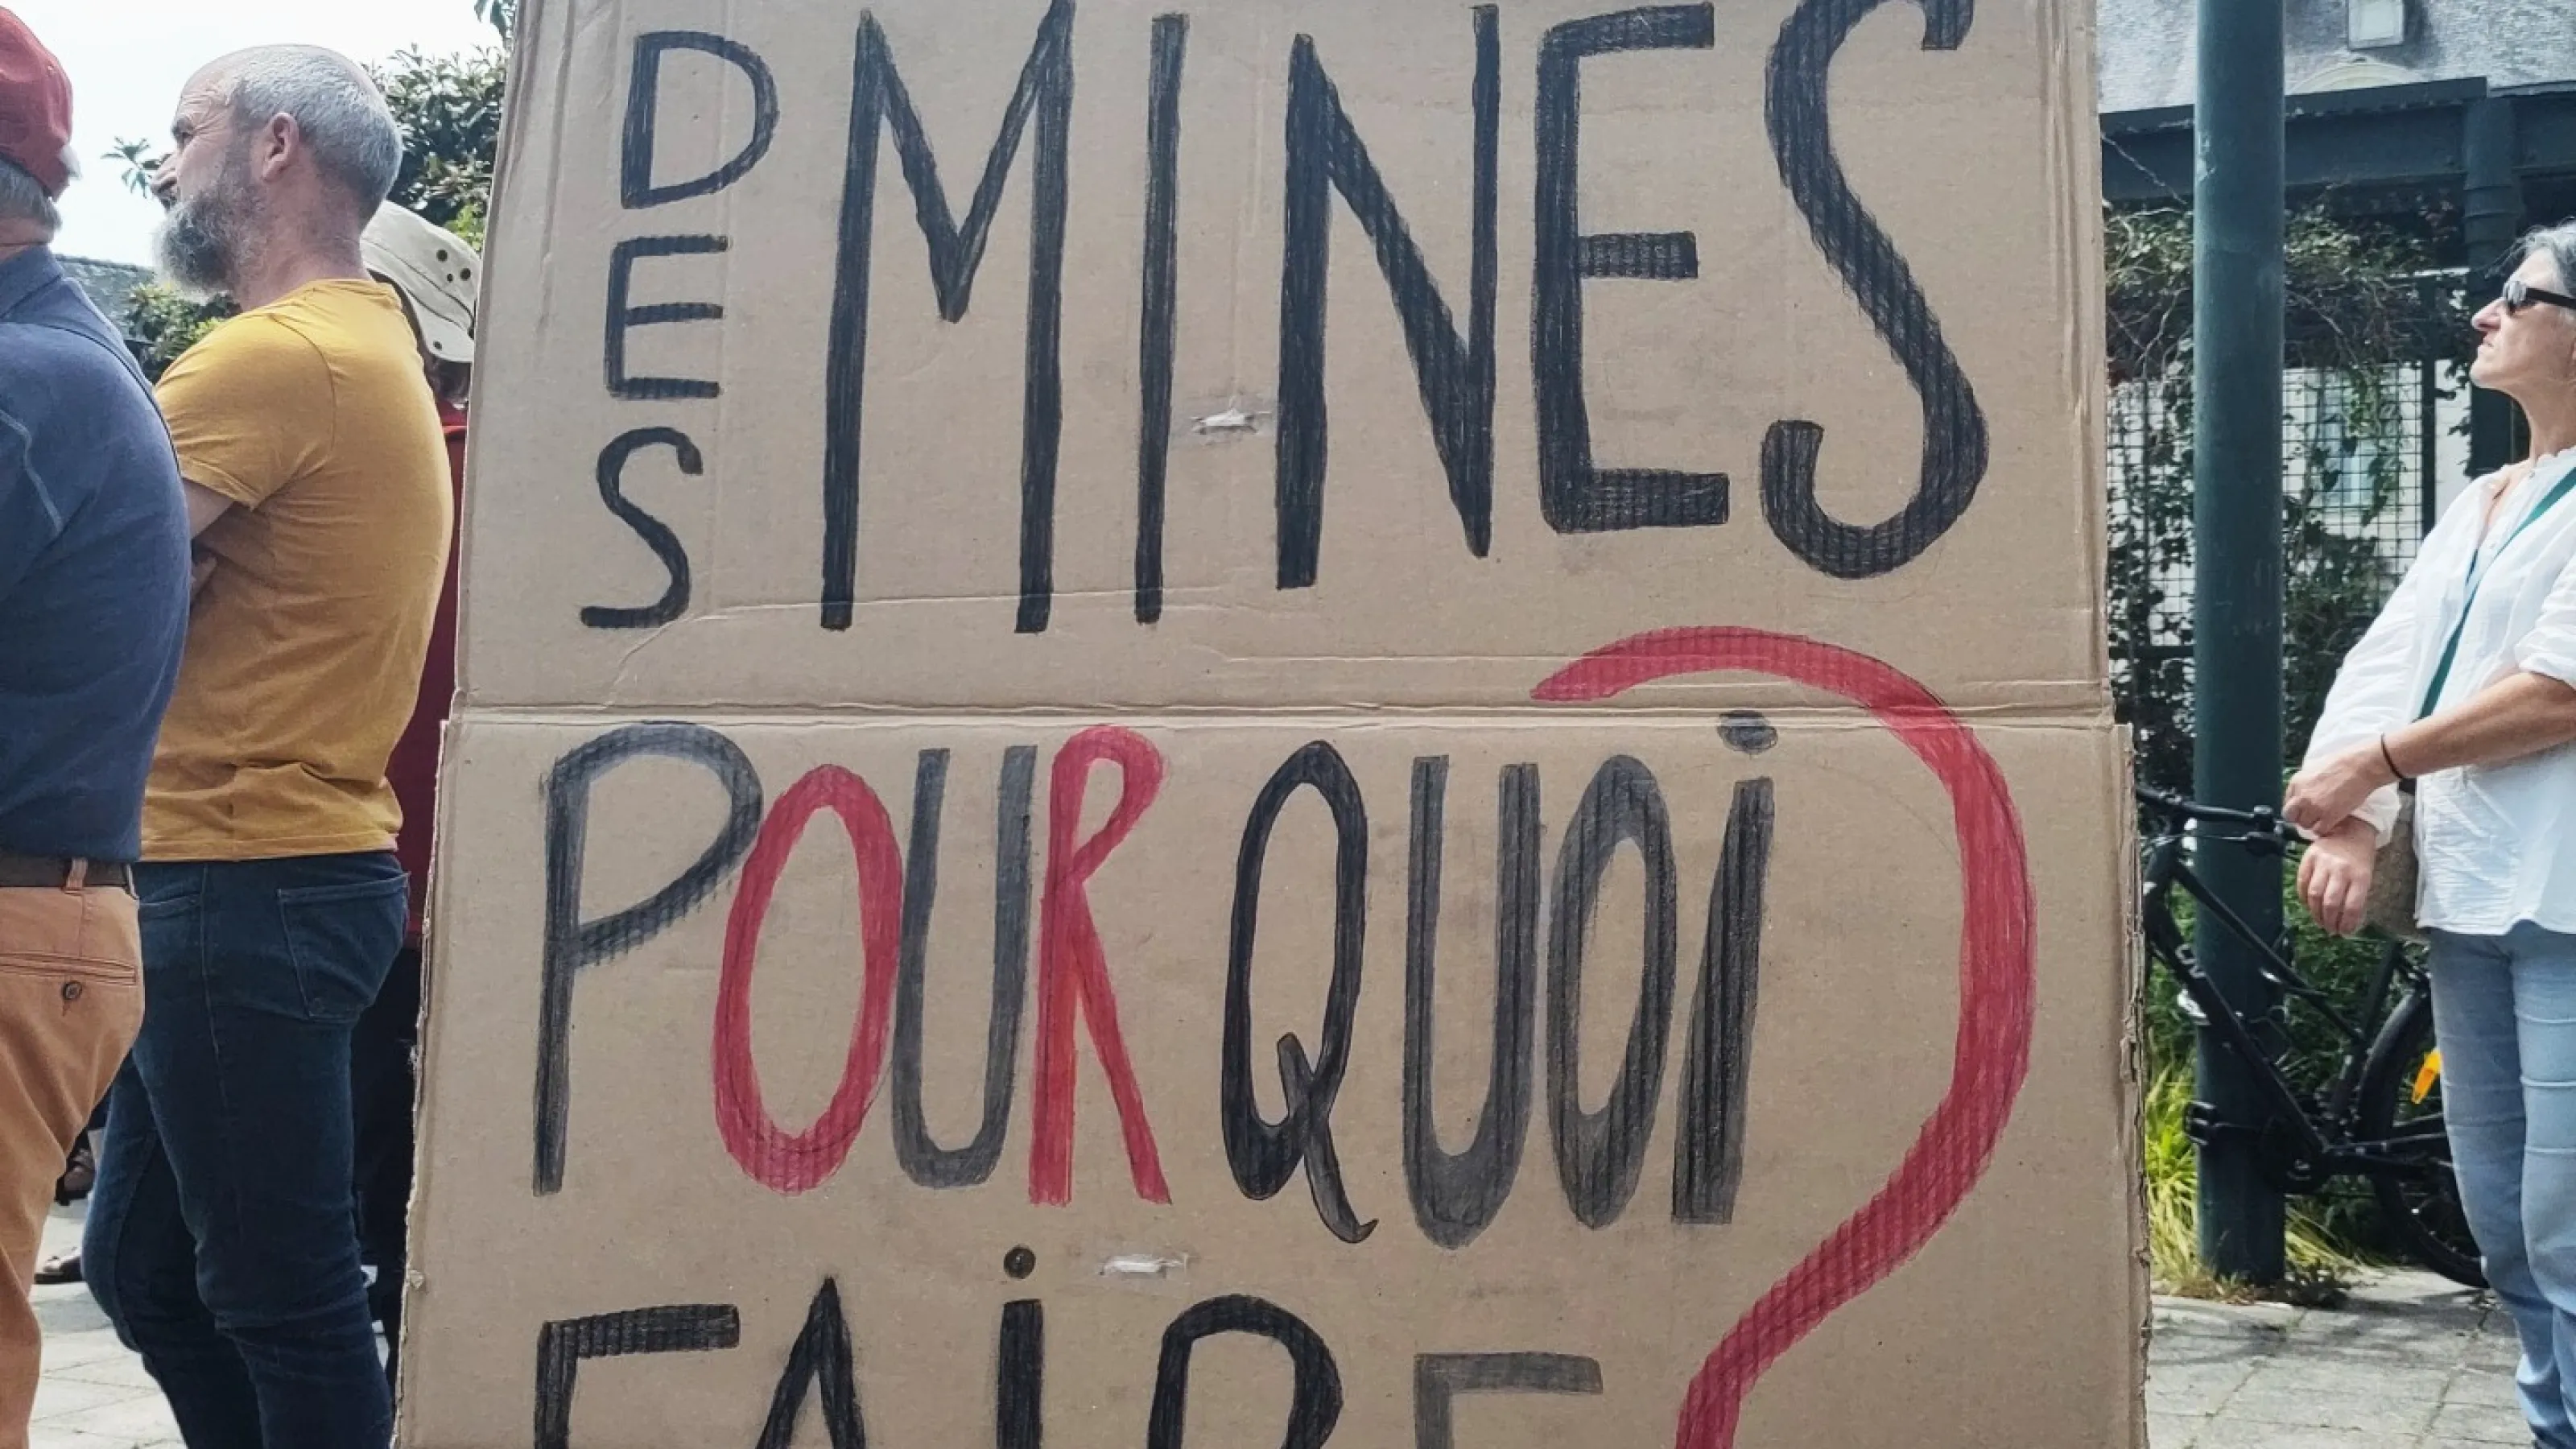 DES MINES
POURQUOi
FAiRE ?